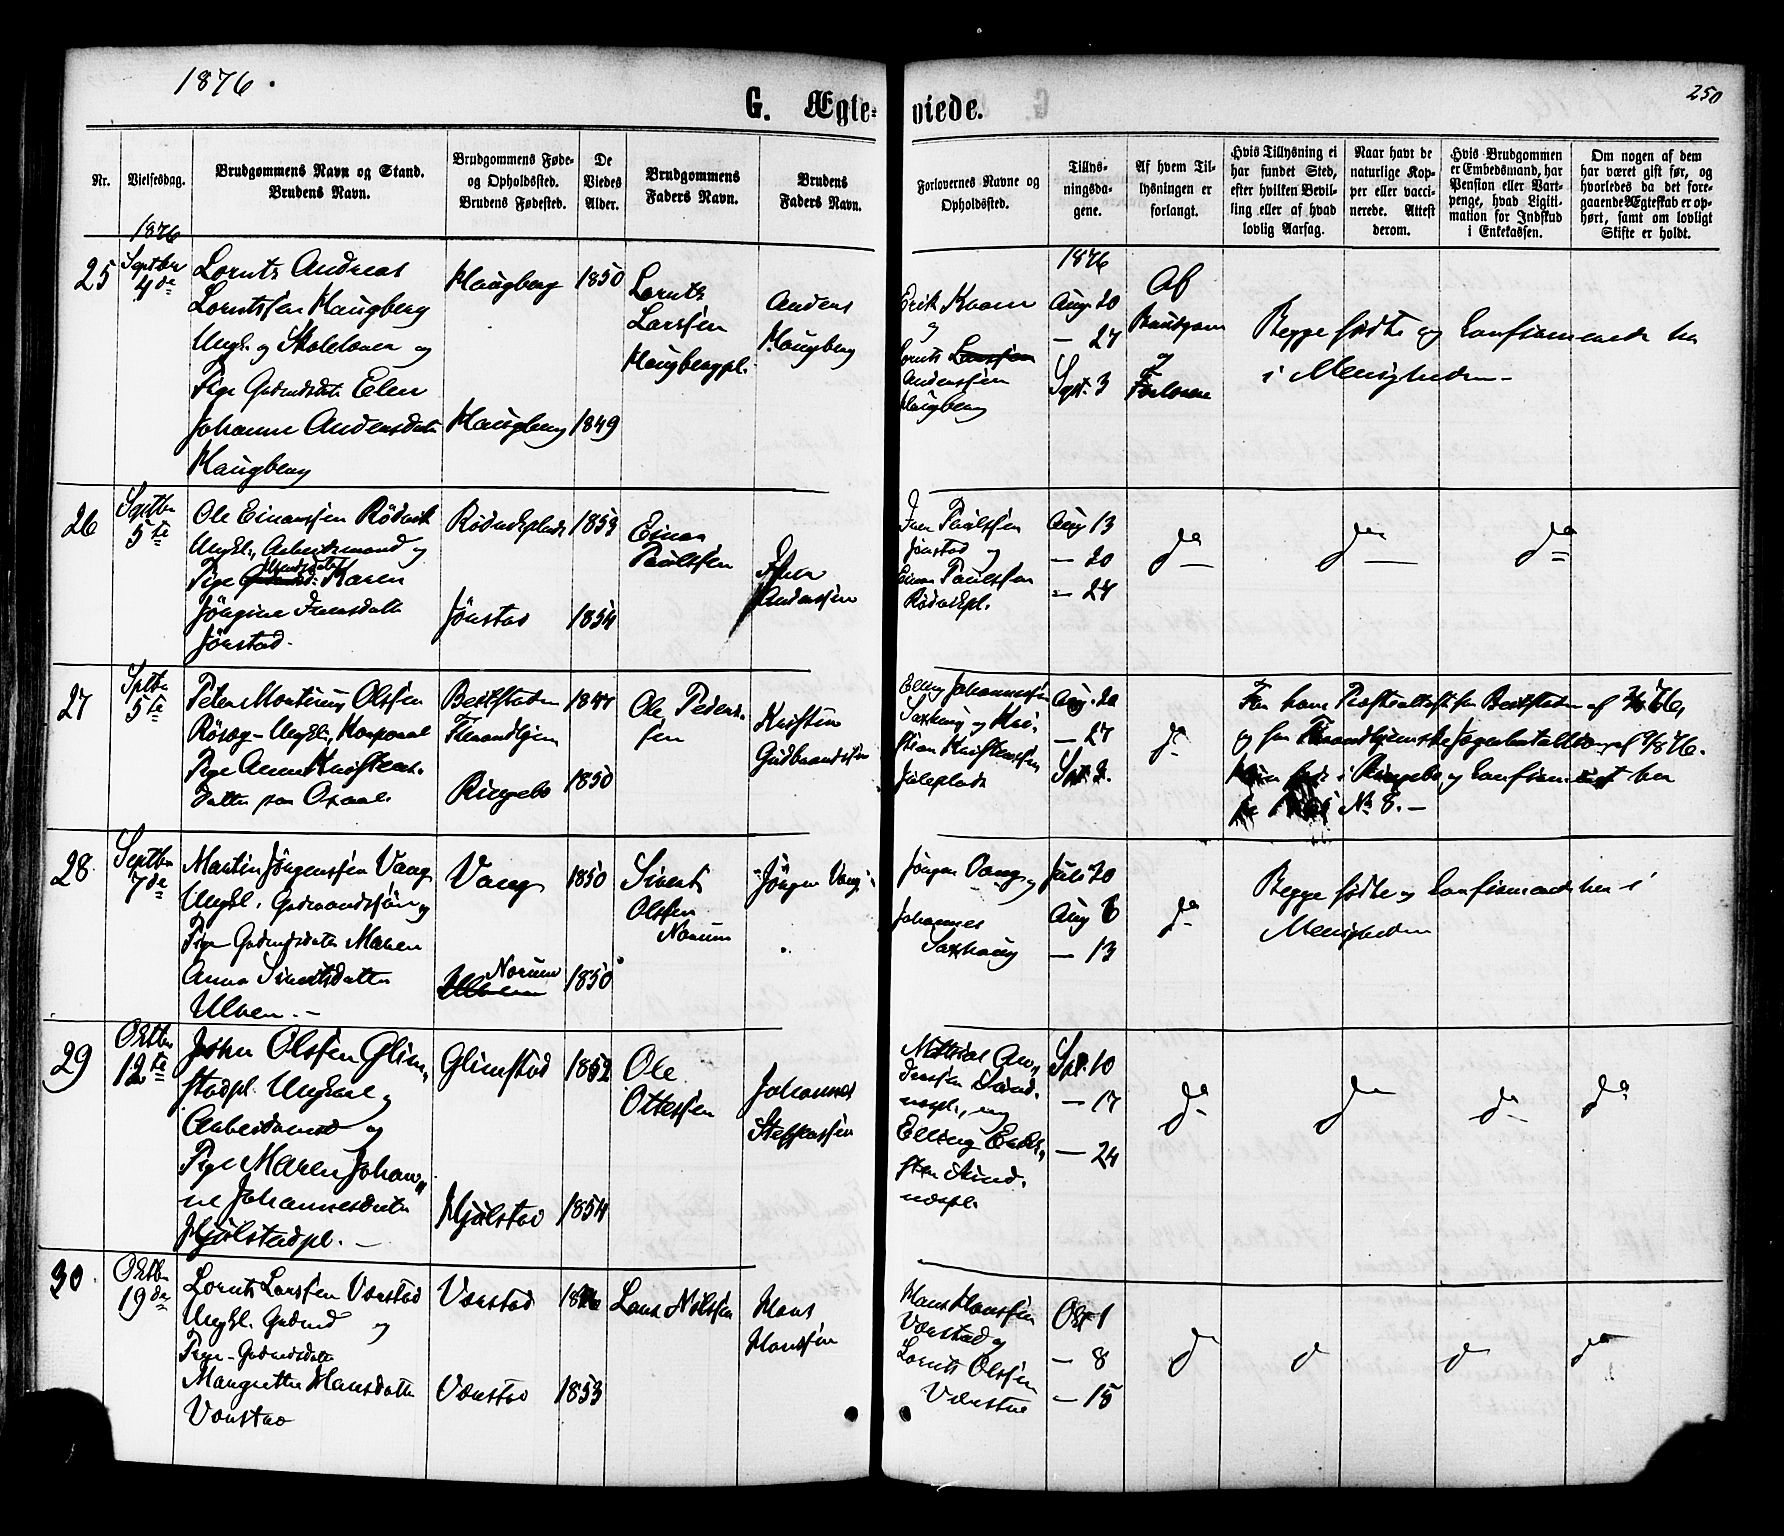 1876.
250
G. Ægte-viede.
Nr.
Vielsesdag.
Brudgommens Navn og Stand.
Brudens Navn.
Brudgommens Føde-
og Opholdssted.
Brudens Fødested.
De
Viedes
Alder.
Brudgommens
Faders Navn.
Brudens
Faders Navn.
Forlovernes Navne og
Opholdssted.
Tillys-
ningsda-
gene.
Af hvem Til-
lysningen er
forlangt.
Hvis Tillysning ei
har fundet Sted,
efter hvilken Bevil-
ling eller af hvad
lovlig Aarsag.
Naar havt de
naturlige Kop-
per eller vacci-
nerede. Attest
derom.
Hvis Brudgommen
er Embedsmand, har
Pension eller Vart-
penge, hvad Ligiti-
mation for Indskud
i Enkekassen.
Om nogen af dem
har været gift før, og
hvorledes da det fore-
gaaende Ægteskab er op-
hørt, samt om lovligt
Skifte er holdt.
1876
25
Septbr
4de
Lornts Andreas
Lorntssen Haugberg
Ungk. og Skolelærer og
Pige Gaardmdsdatr Elen
Johanne Andersdatr
Haugberg
Haugberg
Haugberg
1850
1849
Lornts
Larssen
Haugbergpl.
Anders
Haugberg
Erik Kvam
og
Lornts Larssen
Anderssen
Haugberg
1876
Aug. 20
— 27
Sept. 3
Af
Brudgom
og
Forlovere
Begge fødte og Confirmerede her
i Menigheden
26
Septbr
5te
Ole Einarssen Rödvik
Ungk., Arbeidsmand og
Pige Karen
Jörgine Iversdatter
Jörstad.
Jörstad
1853
1854
Einar
Paulssen
Iver
Anderssen
Iver Paulssen
Jörstad og
Einar Paulssen
Rödvikpl.
Aug 13
— 20
— 27
do
do
do
27
Sptbr
5te
Peter Martinus Olssen
Rösæg - Ungk., Korporal
Pige Anne Kristens-
datter paa
Beitstaden
Ringebo
1847
1850
Ole Peders-
sen
Kristen
Gudbrandssen
Elling Johannessen
Saxhaug og Kri-
stian Kristenssen
Juleplads
Aug. 20
— 27
Spt. 3.
do
i Ringebo og Confirmeret her
No 8. —
28
Septbr
7de
Martin Jörgenssen Vang
Ungk. Gaardmandssön og
Pige Gaardmdsdatr Maren
Anna Sivertsdatter
Ulven. —
Vang
Norum
Ulven
1850
1850
Sivert
Olssen
Norum
Jörgen Vang
Jörgen Vang og
Johannes
Saxhaug
Juli 30
Aug 6
— 13
do
Begge fødte og Confirmerede her i
Menigheden
29
Oktbr
12te
John Olssen Glim-
stadpl. Ungkarl og
Arbeidsmd og
Pige Maren Johan-
ne Johannesdatr
Hjölstadpl. —
Glimstad
Hjölstad
1852
1854
Ole
Ottessen
Johannes
Steffenssen
Mathias An-
derssen Sund-
næspl., og
Elling Erik-
sen Sund-
næspl.
Spt. 10
— 17
— 24
do
do
do
do
30
Oktbr
19de
Lornts Larssen Værstad
Ungk. Gaardmd og
Pige - Gaardmdsdatr
Margrethe Hansdatter
Værstad
Værstad
Værstad
1853
Lars Nilssen
Hans
Hanssen
Hans Hanssen
Værstad og
Lornts Olssen
Værstad
Okt 1
— 8
— 15
do
do
do
do